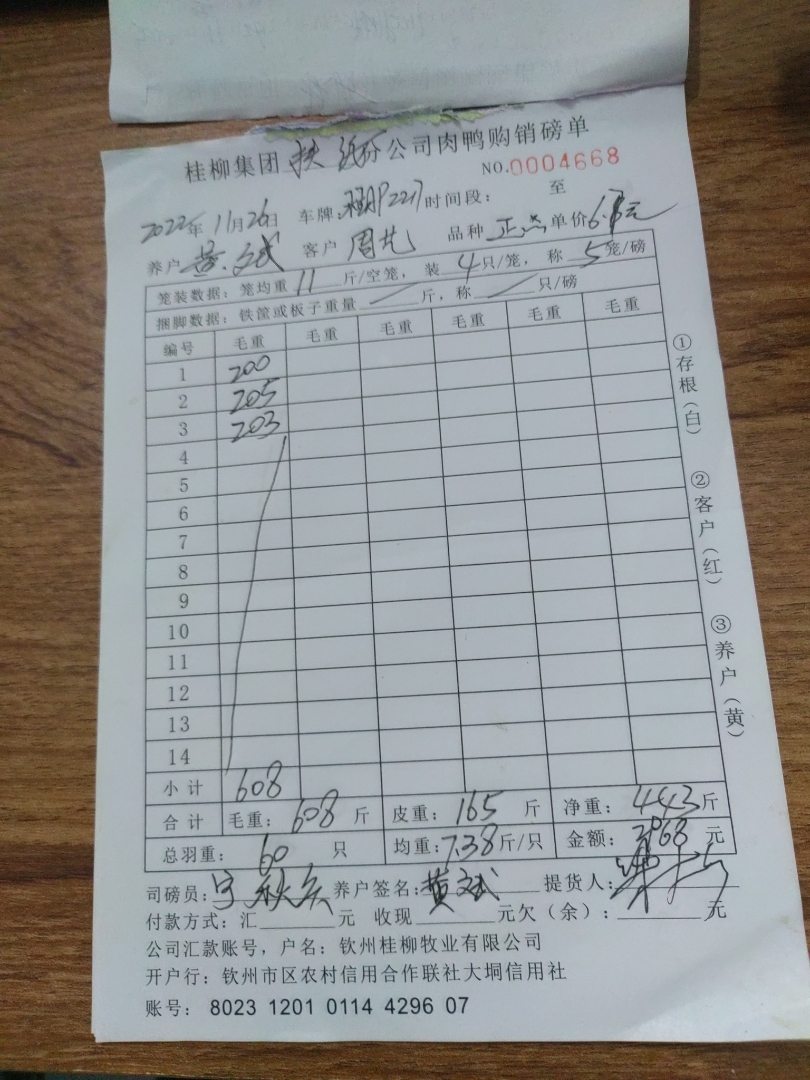 桂柳集团扶绥分公司肉鸭购销磅单
NO.0004668
2022年11月26日 车牌: 2217 时间段: 至
养户 黄文斌 客户 周 品种 单价 元
笼装数据: 笼均重 11 斤/空笼, 装 4 只/笼, 称 5 笼/磅
捆脚数据: 铁筐或板子重量 / 斤, 称 / 只/磅
编号 毛重 毛重 毛重 毛重 毛重 毛重
1 200
2 205
3 203
4
5
6
7
8
9
10
11
12
13
14
小计 608
合计 毛重: 608 斤 皮重: 165 斤 净重: 443 斤
总羽重: 60 只 均重: 7.38 斤/只 金额: 3068 元
司磅员: 养户签名: 黄文斌 提货人:
付款方式: 汇 元 收现 元欠(余): 元
公司汇款账号, 户名: 钦州桂柳牧业有限公司
开户行: 钦州市区农村信用合作联社大垌信用社
账号: 8023 1201 0114 4296 07
①存根(白)
②客户(红)
③养户(黄)